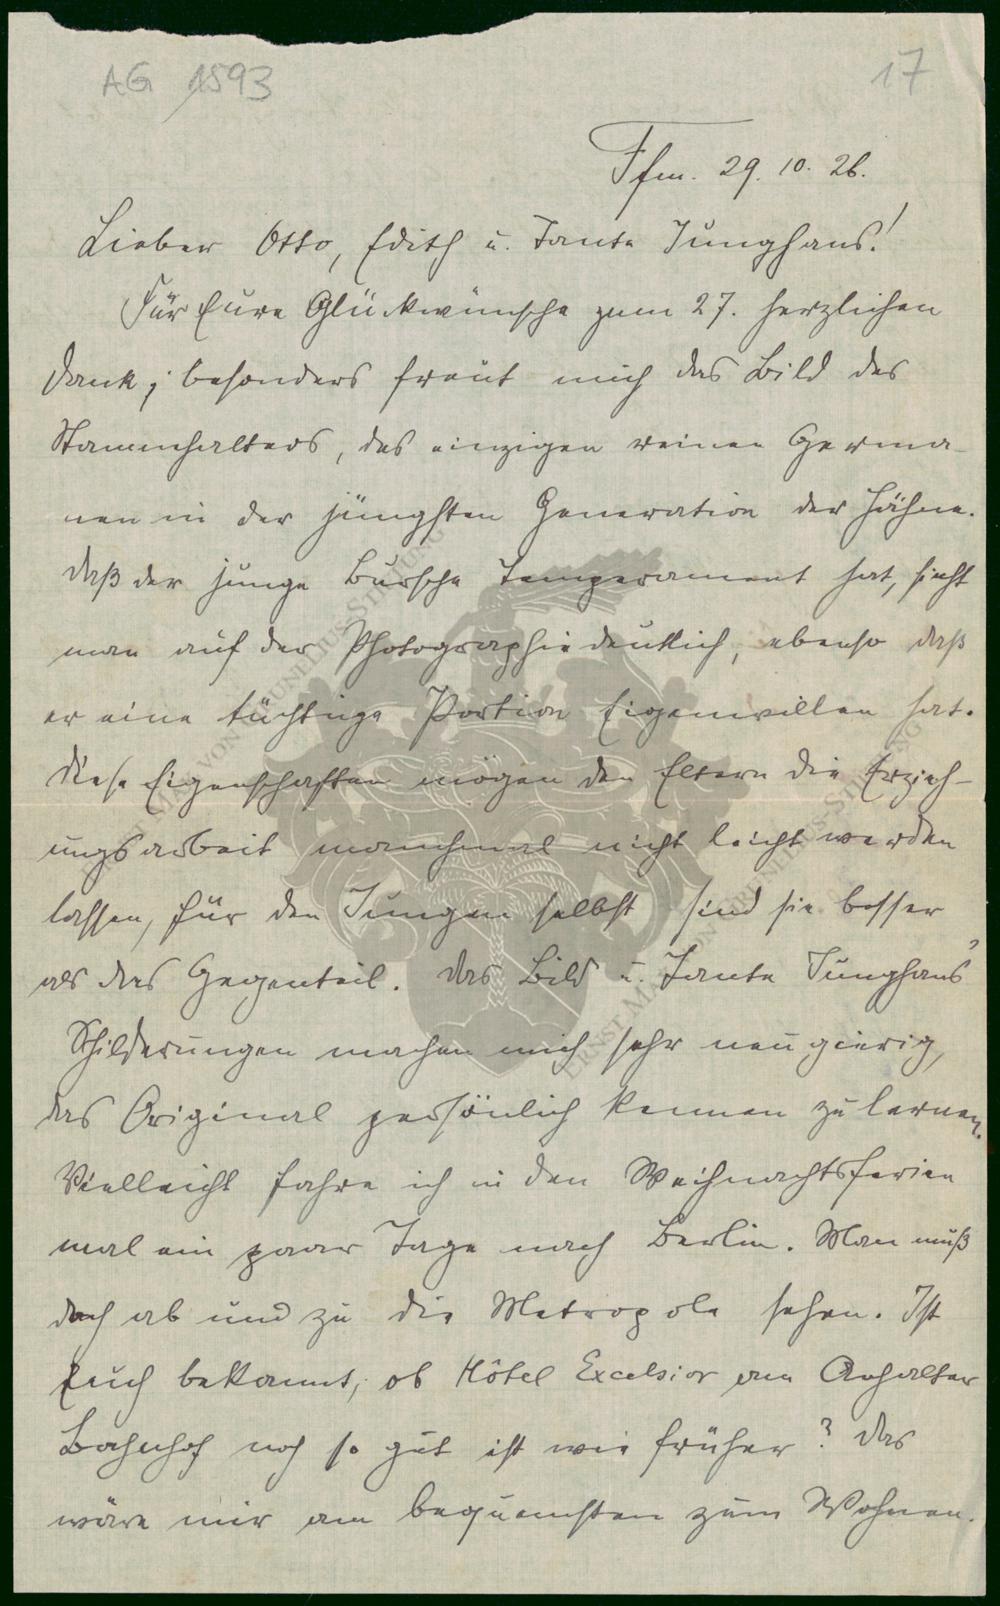 AG 1593
17
Ffm. 29. 10. 26.
Lieber Otto, Edith u. Tante Junghans!
Für Eure Glückwünsche zum 27. herzlichen
Dank; besonders freut mich das Bild des
Stammhalters, des einzigen reinen Germa-
nen in der jüngsten Generation der Hähne.
Daß der junge Bursche Temperament hat, sieht
man auf der Photographie deutlich, ebenso daß
er eine tüchtige Portion Eigenwillen hat.
Diese Eigenschaften mögen den Eltern die Erzieh-
ungsarbeit manchmal nicht leicht werden
lassen, für den Jungen selbst sind sie besser
als das Gegenteil. Das Bild u. Tante Junghans'
Schilderungen machen mich sehr neugierig,
das Original persönlich kennen zu lernen.
Vielleicht fahre ich in den Weihnachtsferien
mal ein paar Tage nach Berlin. Man muß
doch ab und zu die Metropole sehen. Ist
Euch bekannt, ob Hôtel Excelsior am Anhalter
Bahnhof noch so gut ist wie früher? Das
wäre mir am bequemsten zum Wohnen.
ERNST MAX VON GRUNELIUS-STIFTUNG
ERNST MAX VON GRUNELIUS-STIFTUNG